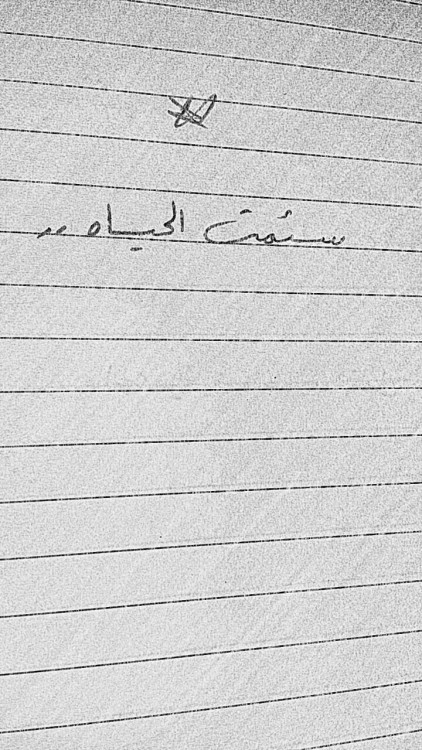 سئمت الحياه ..